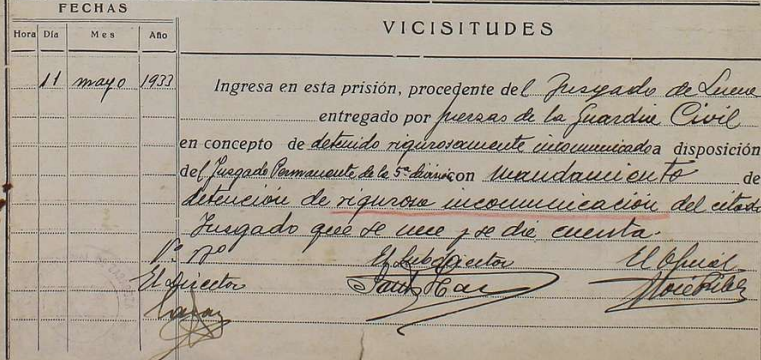 FECHAS
VICISITUDES
Hora Día Mes Año
11 mayo 1933 Ingresa en esta prisión, procedente del Juzgado de
entregado por fuerzas de la Guardia Civil
en concepto de detenido rigurosamente incomunicado a disposición
del Juzgado Permanente de la 5ª con mandamiento de
detención de rigurosa incomunicación del citado
Juzgado que se une y se dió cuenta.
Vº Bº El Subdirector El Oficial
El Director